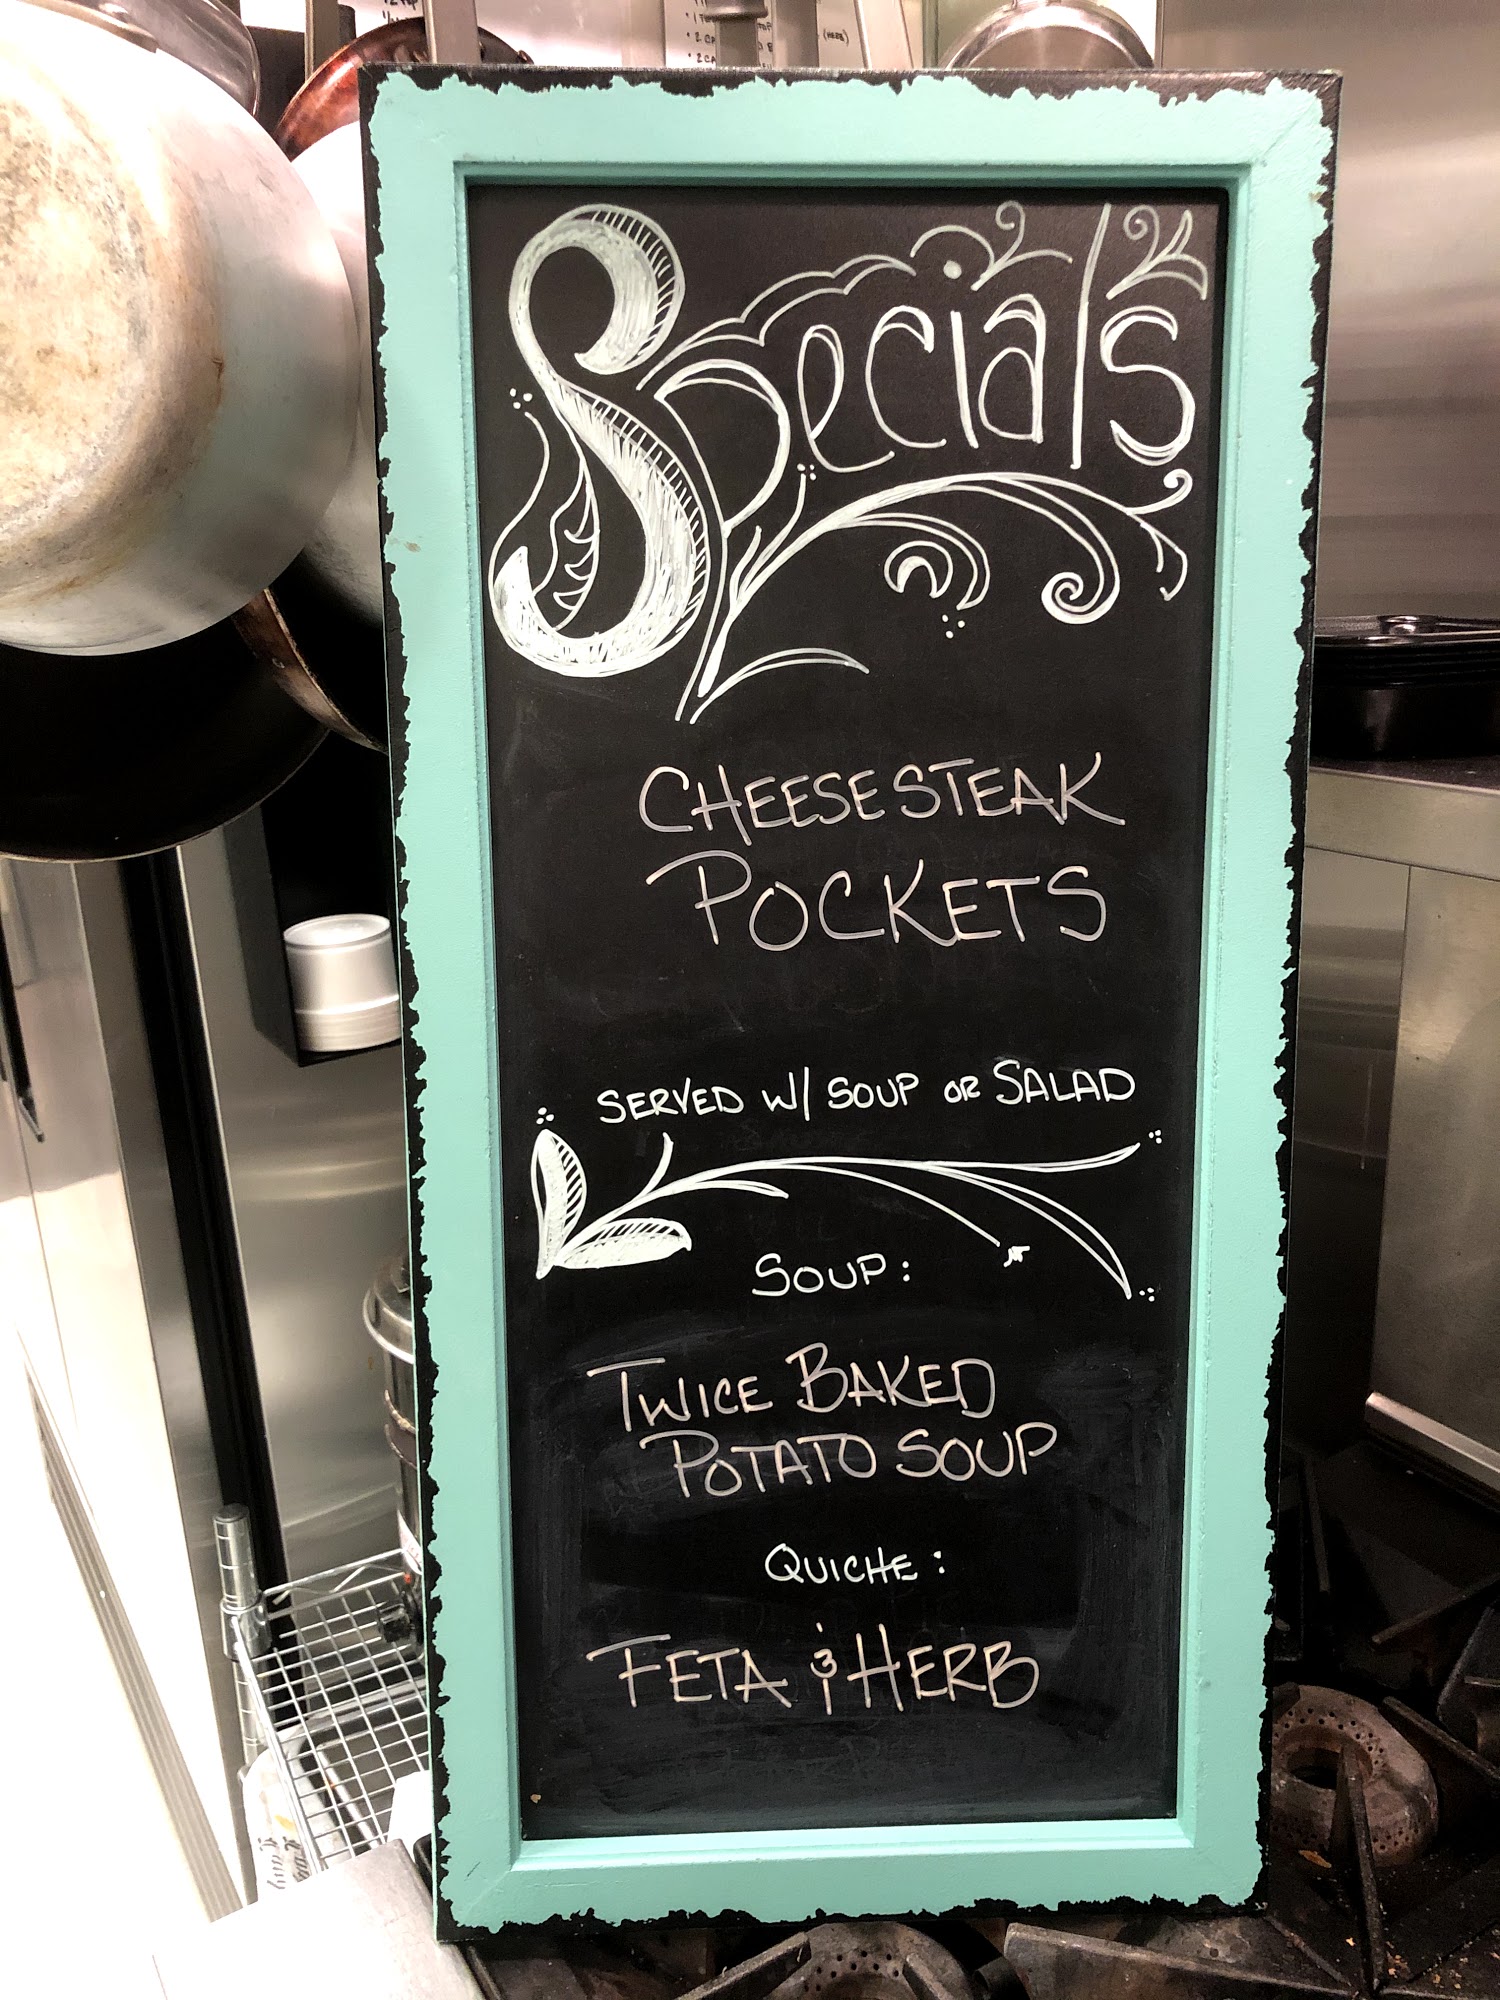 Specials
CHEESESTEAK
POCKETS
SERVED W/ SOUP OR SALAD
SOUP:
TWICE BAKED
POTATO SOUP
QUICHE:
FETA & HERB